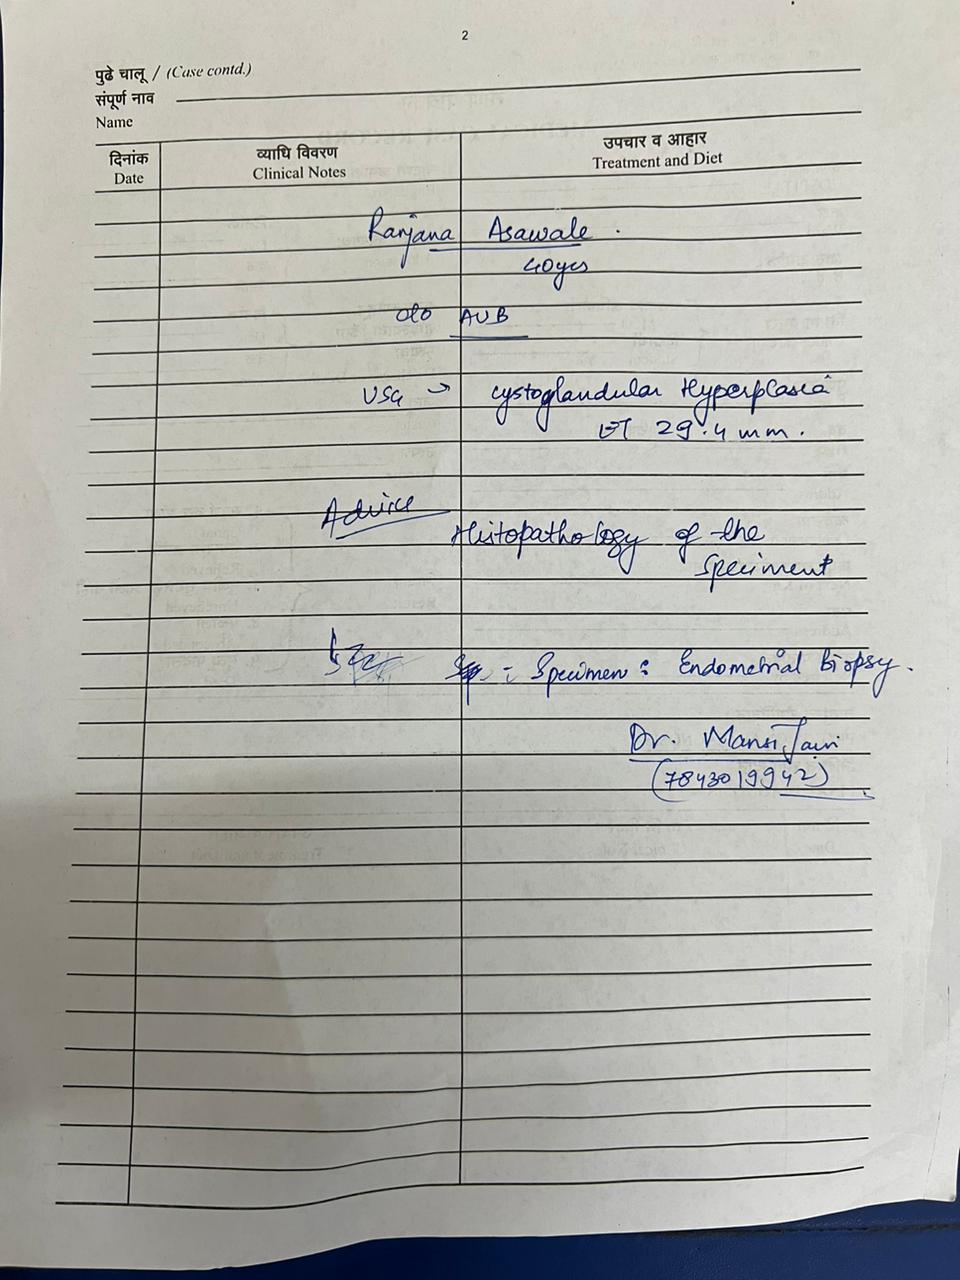 2
पुढे चालू / (Case contd.)
संपूर्ण नाव
Name
दिनांक
Date
व्याधि विवरण
Clinical Notes
उपचार व आहार
Treatment and Diet
Ranjana Asawale.
40yrs
AUB
USG → cystoglandular Hyperplasia
ET 29.4 mm.
Advice
Histopathology of the
speciment
Specimen: Endometrial Biopsy.
Dr. Mansi Jain
(7843019942)